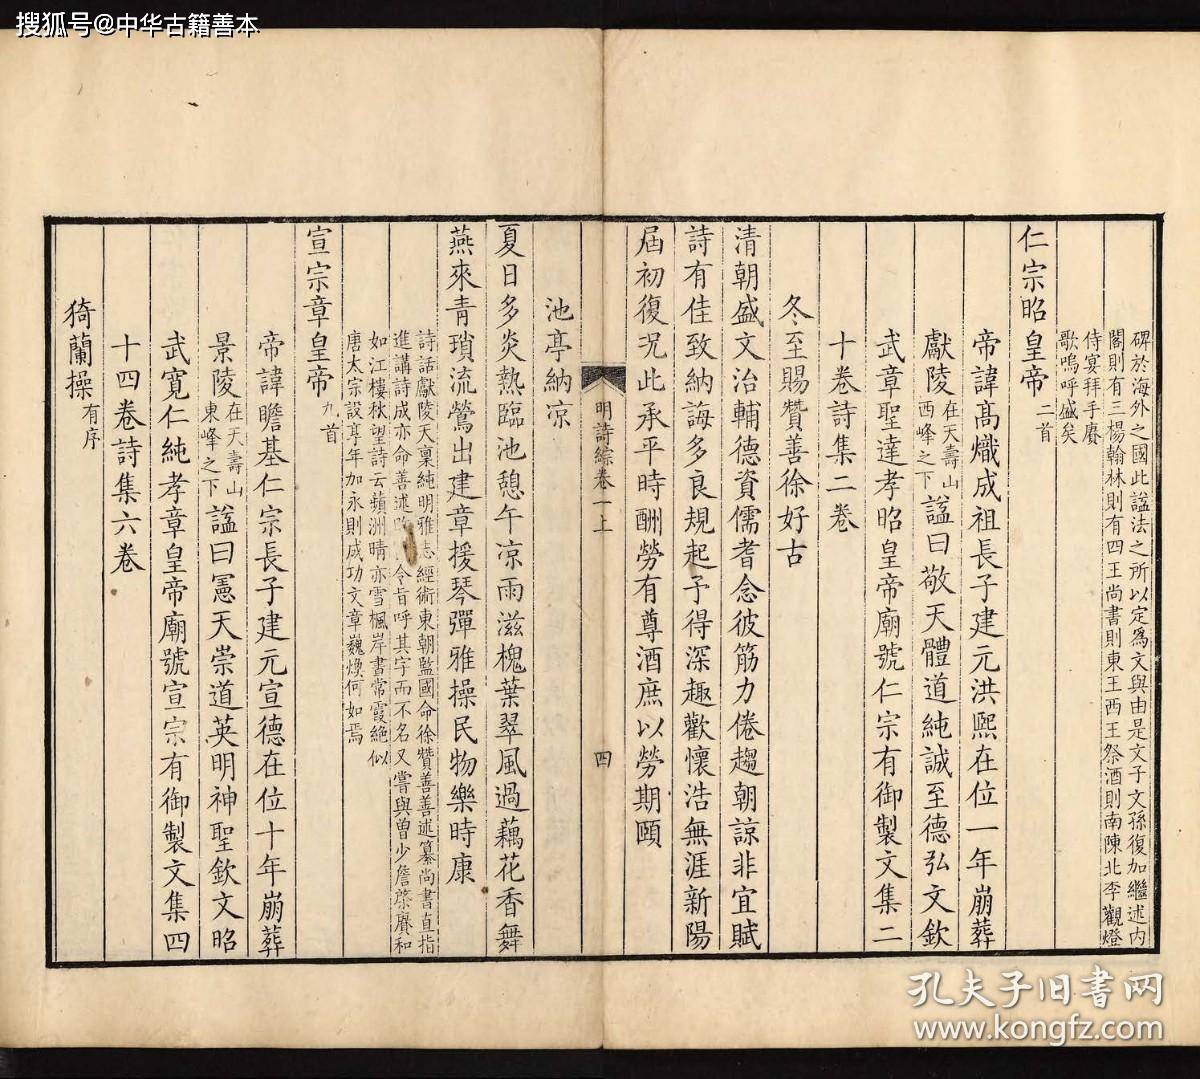 搜狐号@中华古籍善本
碑於海外之國此謚法之所以定為文與由是文子文孫復加繼述内
閣則有三楊翰林則有四王尚書則東王西王祭酒則南陳北李觀燈
侍宴拜手賡
歌嗚呼盛矣
仁宗昭皇帝二首
帝諱高熾成祖長子建元洪熙在位一年崩葬
獻陵在天壽山西峰之下謚曰敬天體道純誠至德弘文欽
武章聖達孝昭皇帝廟號仁宗有御製文集二
十卷詩集二卷
冬至賜贊善徐好古
清朝盛文治輔德資儒耆念彼筋力倦趨朝諒非宜賦
詩有佳致納誨多良規起予得深趣歡懷浩無涯新陽
屆初復况此承平時酬勞有尊酒庶以勞期頤
明詩綜卷一上
四
池亭納凉
夏日多炎熱臨池憩午凉雨滋槐葉翠風過藕花香舞
燕來青瑣流鶯出建章援琴彈雅操民物樂時康
詩話獻陵天稟純明雅志經術東朝監國命徐贊善善述纂尚書直指
進講詩成亦命善述令旨呼其字而不名又嘗與曾少詹棨賡和
如江樓秋望詩云蘋洲晴亦雪楓岸書常霞絶似
唐太宗設享年加永則成功文章巍煥何如焉
宣宗章皇帝九首
帝諱瞻基仁宗長子建元宣德在位十年崩葬
景陵在天壽山東峰之下謚曰憲天崇道英明神聖欽文昭
武寬仁純孝章皇帝廟號宣宗有御製文集四
十四卷詩集六卷
猗蘭操有序
孔夫子旧书网
www.kongfz.com